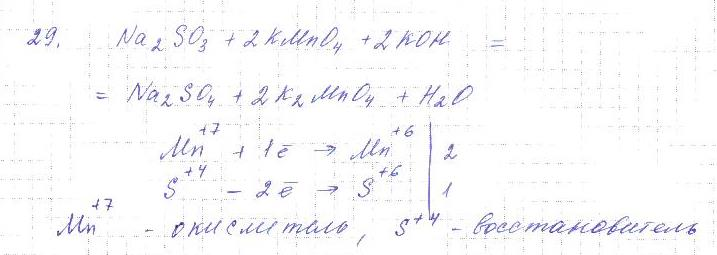 29. Na₂SO₃ + 2KMnO₄ + 2KOH =
= Na₂SO₄ + 2K₂MnO₄ + H₂O
Mn⁺⁷ + 1ē → Mn⁺⁶ | 2
S⁺⁴ - 2ē → S⁺⁶ | 1
Mn⁺⁷ - окислитель, S⁺⁴ - восстановитель